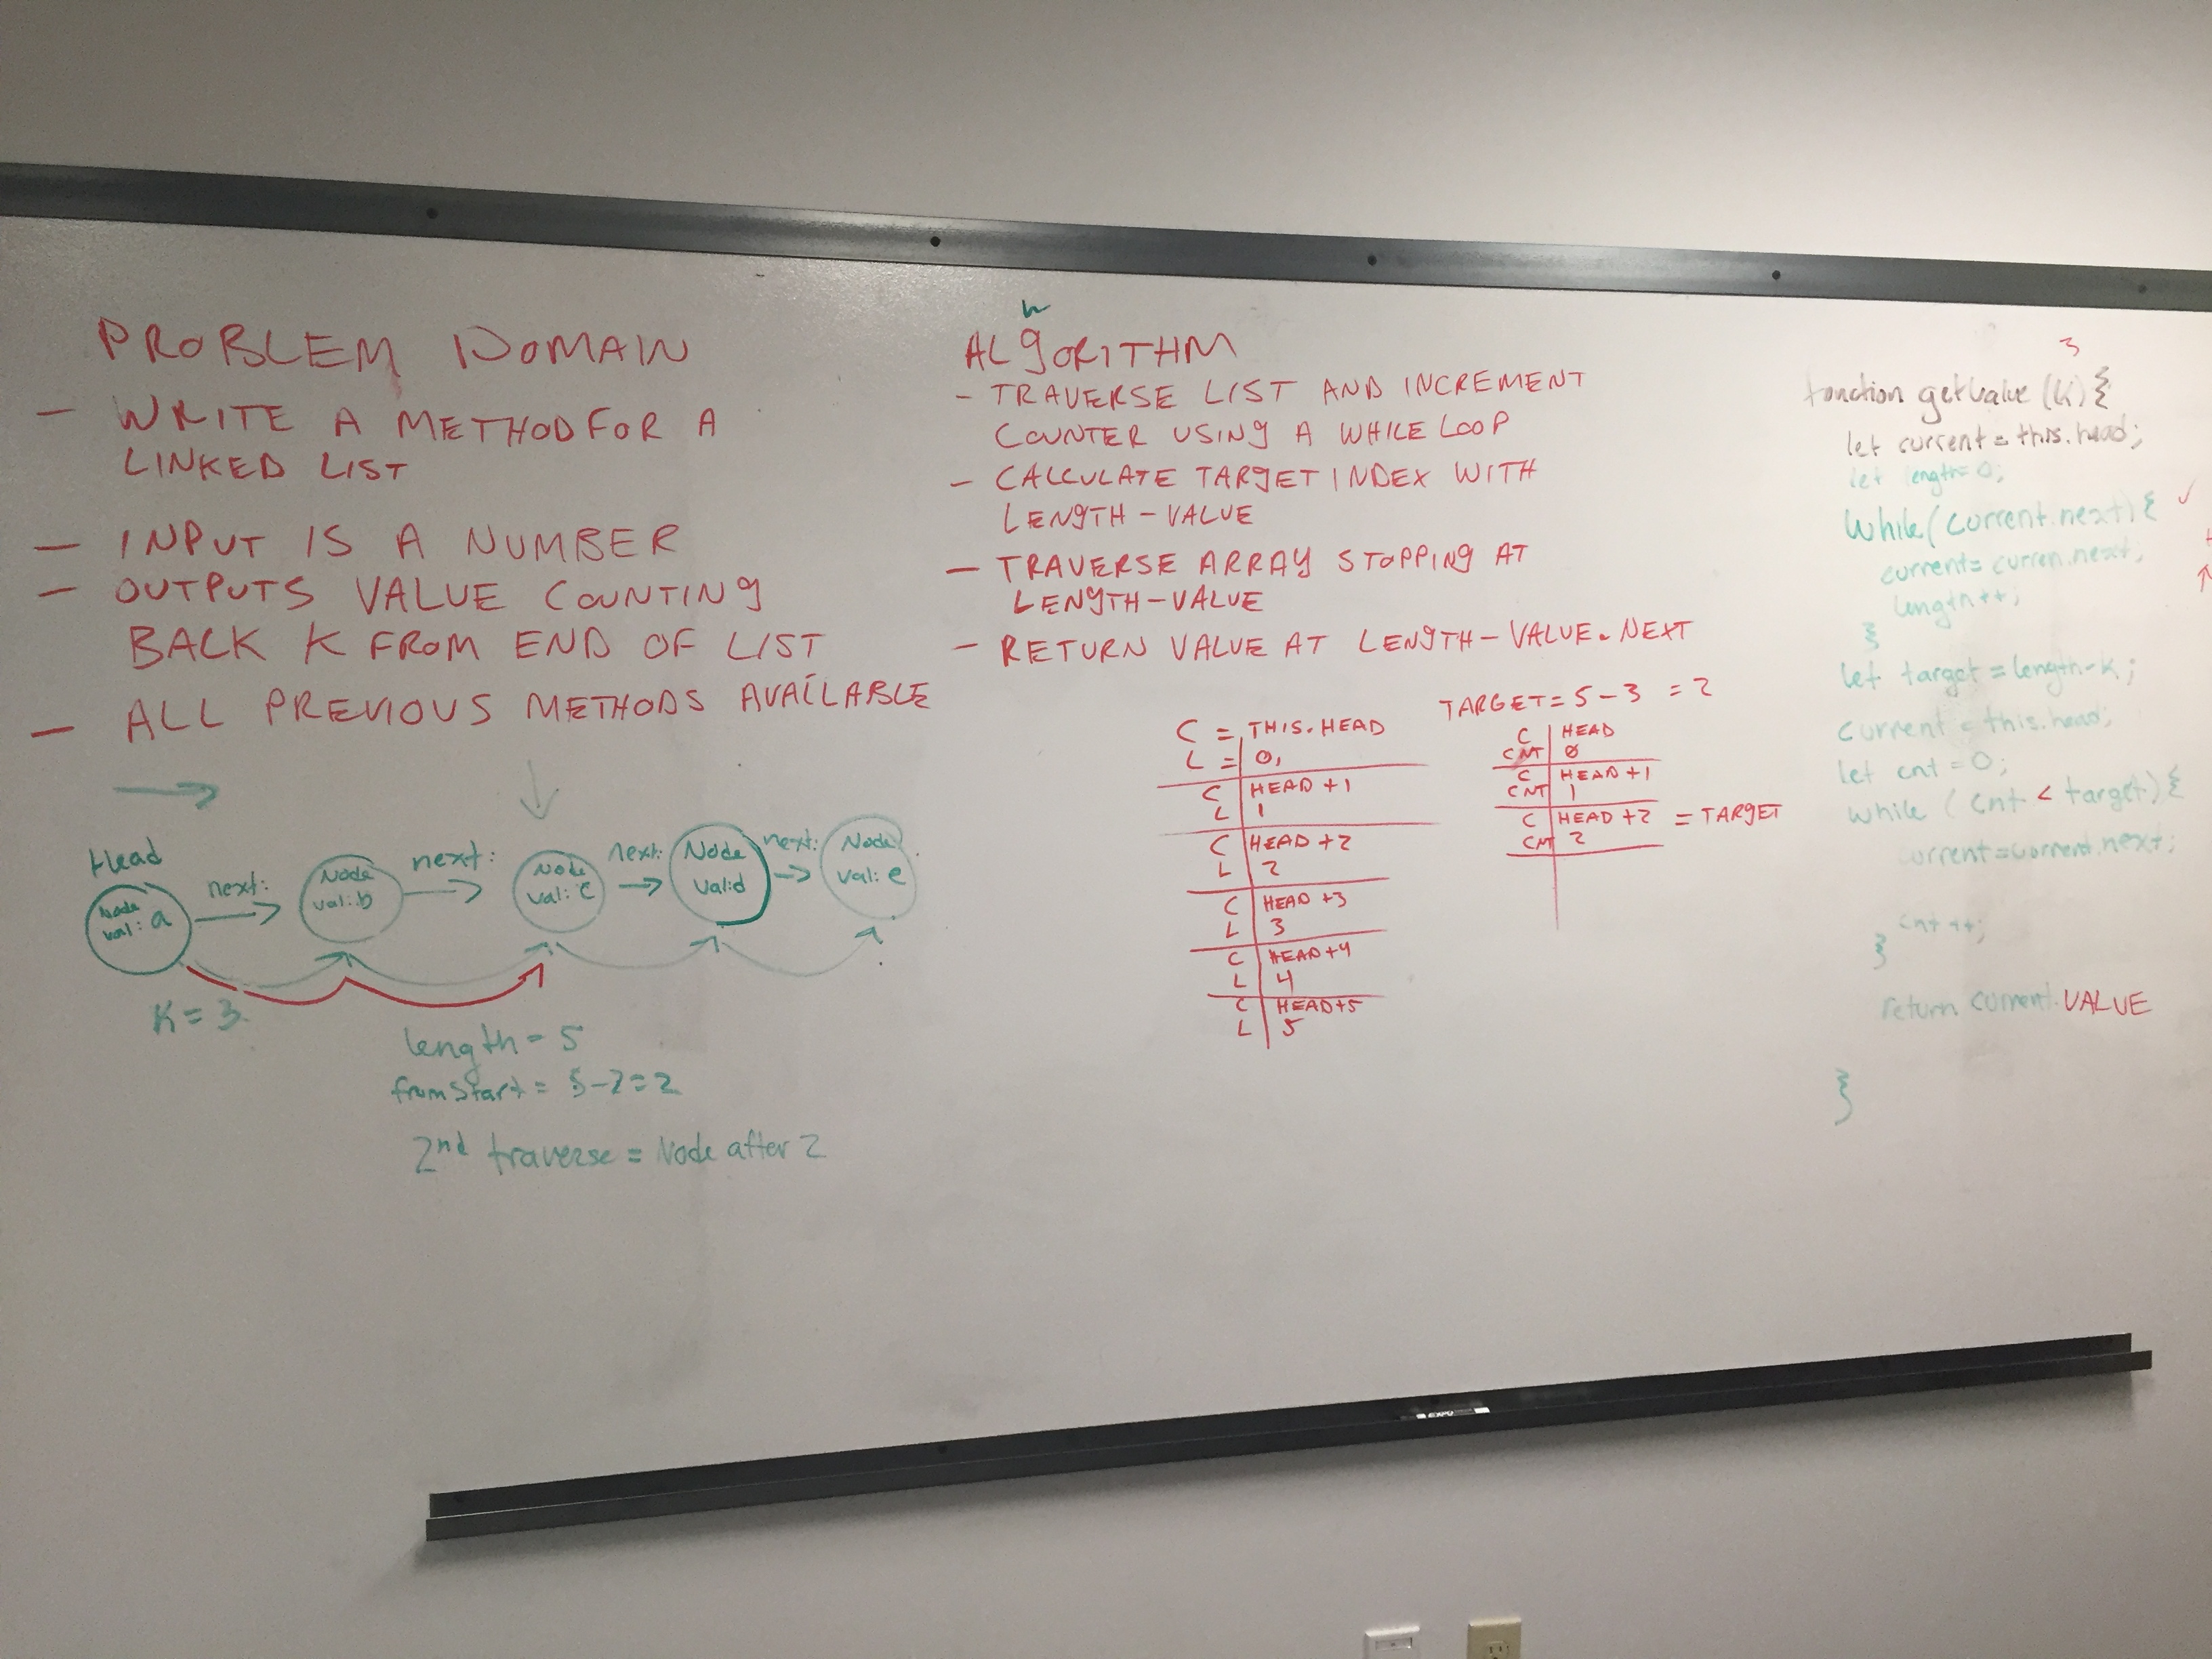 PROBLEM DOMAIN
- WRITE A METHOD FOR A
LINKED LIST
- INPUT IS A NUMBER
- OUTPUTS VALUE COUNTING
BACK K FROM END OF LIST
- ALL PREVIOUS METHODS AVAILABLE
Head
Node
val: a
next:
Node
val: b
next:
Node
val: c
next:
Node
val: d
next:
Node
val: e
K = 3
length = 5
from start = 5-2=2
2nd traverse = Node after 2
ALgORITHM
- TRAVERSE LIST AND INCREMENT
COUNTER USING A WHILE LOOP
- CALCULATE TARGET INDEX WITH
LENGTH - VALUE
- TRAVERSE ARRAY STOPPING AT
LENGTH - VALUE
- RETURN VALUE AT LENGTH - VALUE.NEXT
C = THIS.HEAD
L = 0,
C HEAD +1
L 1
C HEAD +2
L 2
C HEAD +3
L 3
C HEAD +4
L 4
C HEAD +5
L 5
TARGET = 5 - 3 = 2
C HEAD
CNT 0
C HEAD +1
CNT 1
C HEAD +2 = TARGET
CNT 2
3
function getValue (k) {
let current = this.head;
let length = 0;
while (current.next) {
current = curren.next;
length ++;
}
let target = length - k;
current = this.head;
let cnt = 0;
while (cnt < target) {
current = current.next;
cnt ++;
}
return current.VALUE
}
EXPO